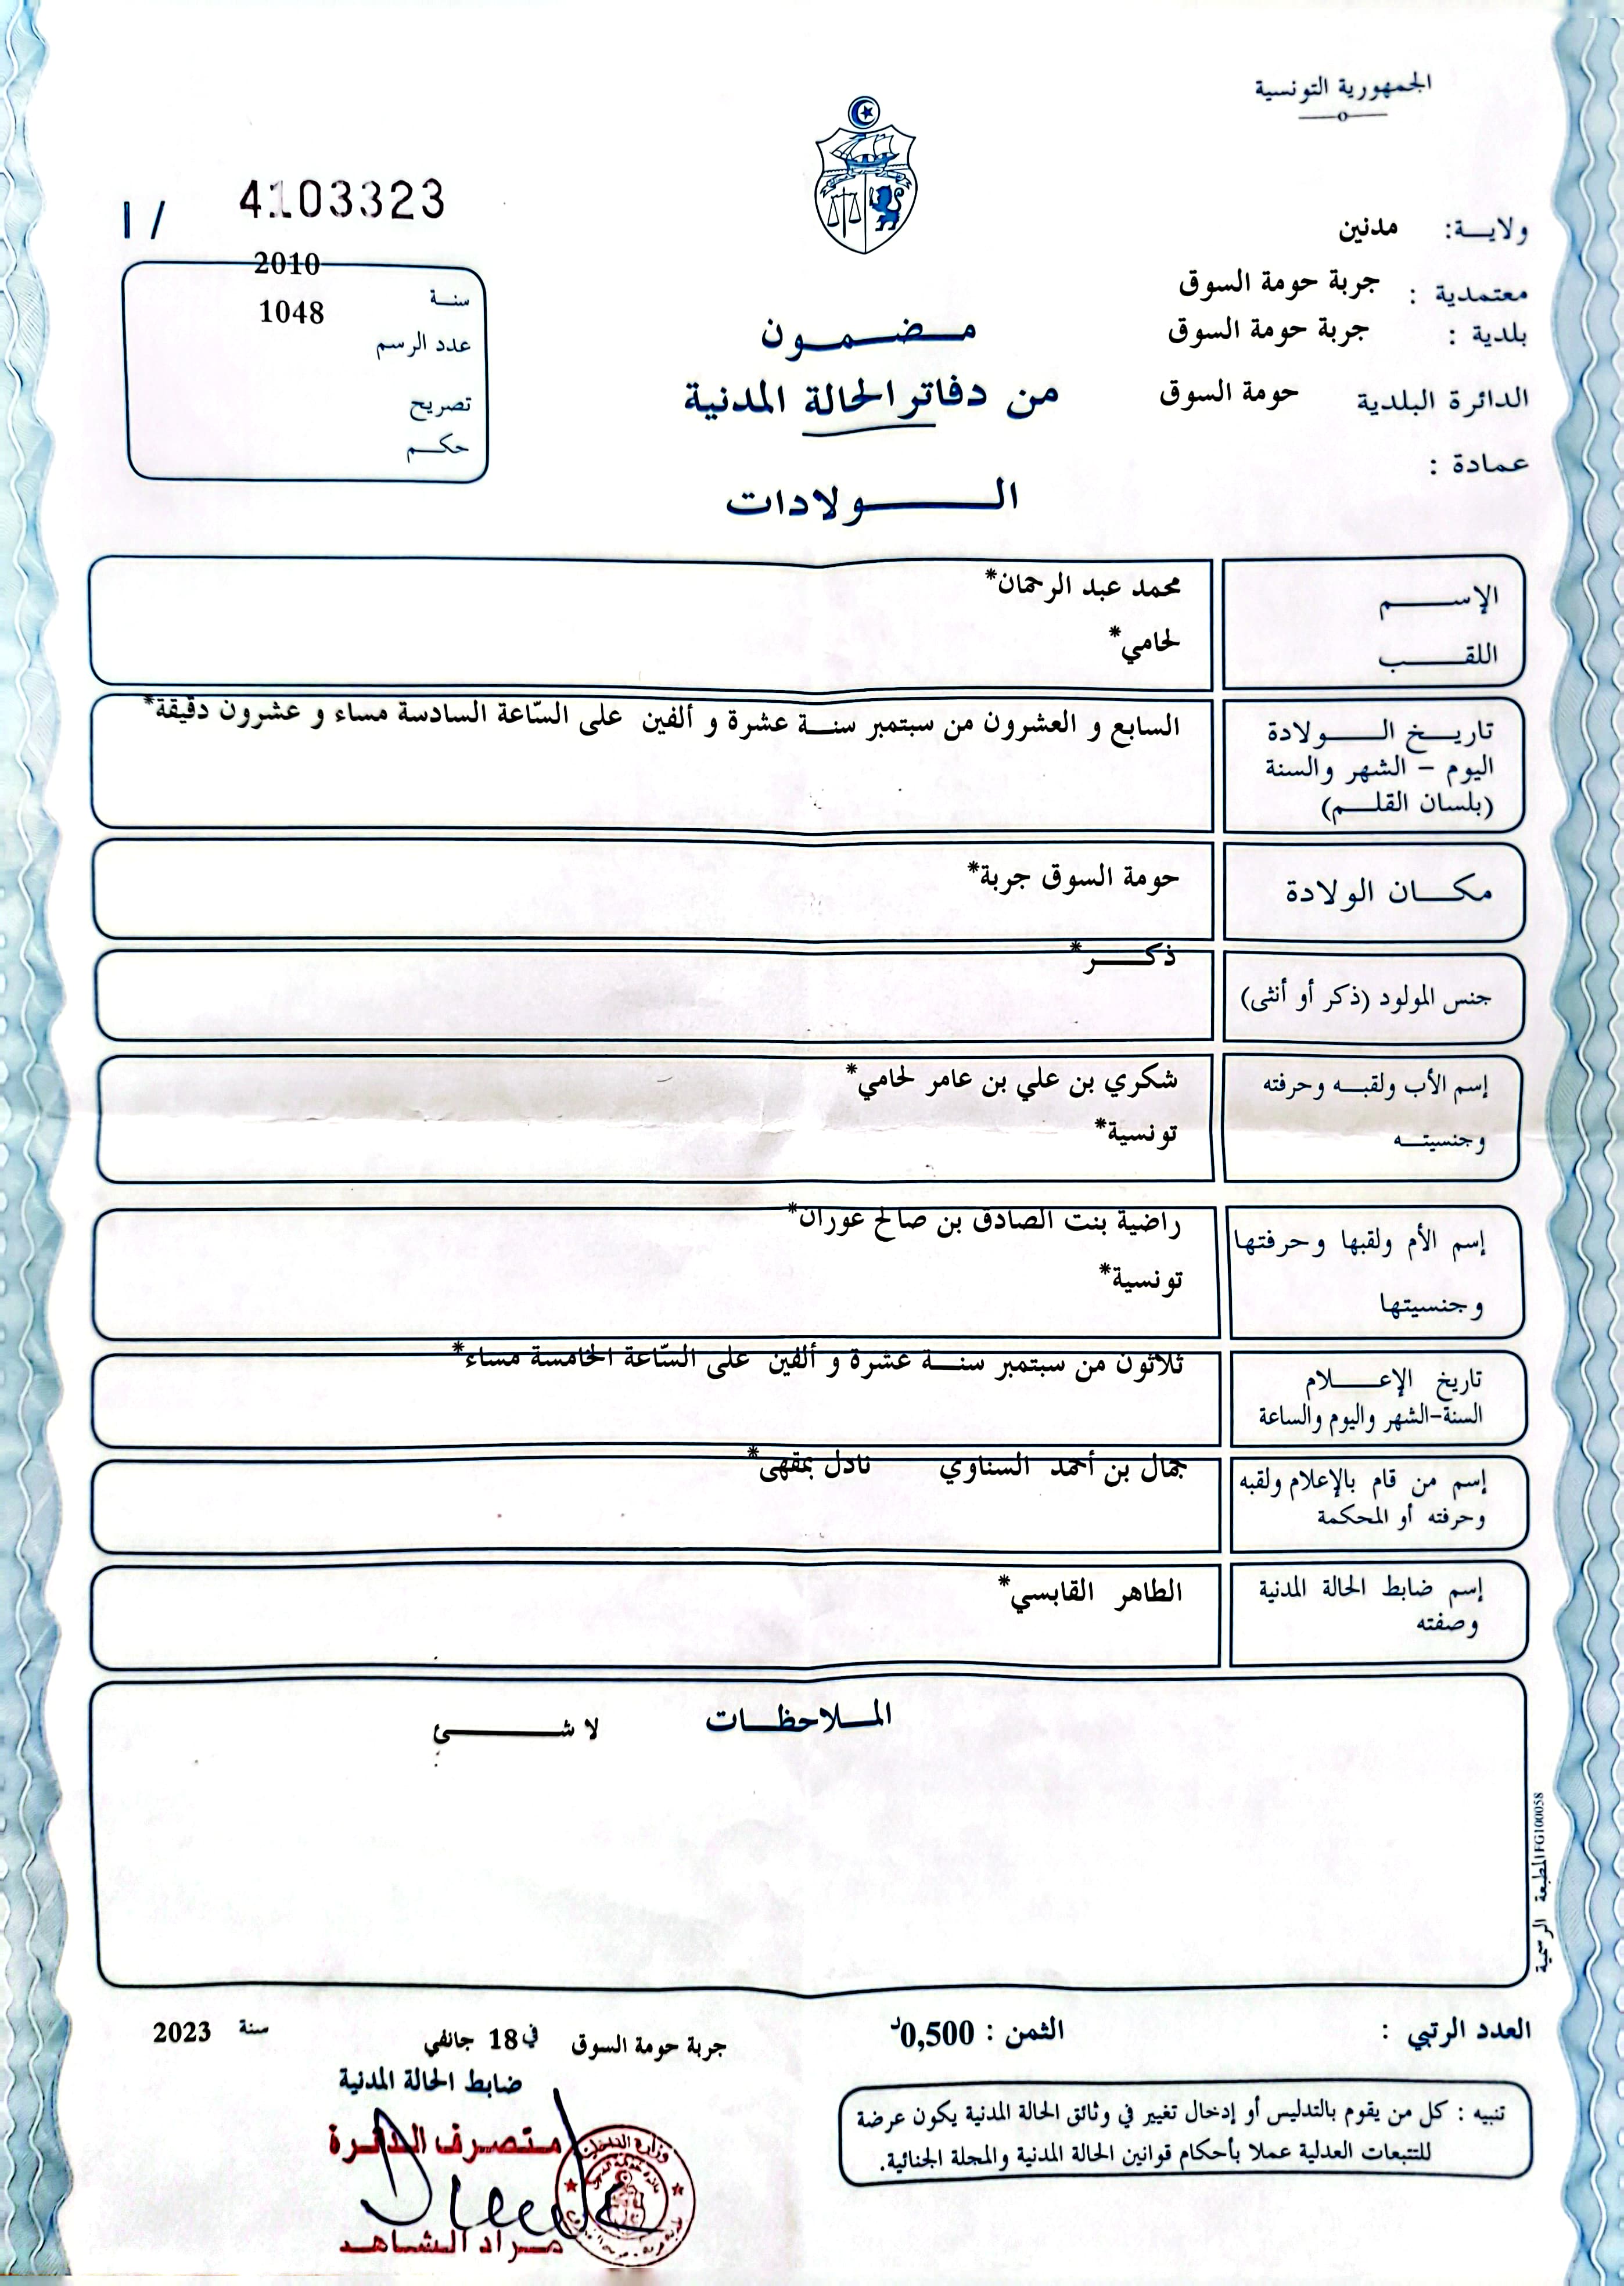 الجمهورية التونسية
ولاية: مدنين
معتمدية : جربة حومة السوق
بلدية : جربة حومة السوق
الدائرة البلدية حومة السوق
عمادة :
4103323 / I
سنة 2010
عدد الرسم 1048
تصريح
حكم
مضمون
من دفاتر الحالة المدنية
الولادات
الإسم محمد عبد الرحمان*
اللقب لحامي*
تاريخ الولادة السابع و العشرون من سبتمبر سنة عشرة و ألفين على السّاعة السادسة مساء و عشرون دقيقة*
اليوم - الشهر والسنة
(بلسان القلم)
مكان الولادة حومة السوق جربة*
جنس المولود (ذكر أو أنثى) ذكر*
إسم الأب ولقبه وحرفته شكري بن علي بن عامر لحامي*
وجنسيته تونسية*
إسم الأم ولقبها وحرفتها راضية بنت الصادق بن صالح عوران*
وجنسيتها تونسية*
تاريخ الإعلام ثلاثون من سبتمبر سنة عشرة و ألفين على السّاعة الخامسة مساء*
السنة-الشهر واليوم والساعة
إسم من قام بالإعلام ولقبه جمال بن أحمد السناوي نادل بمقهى*
وحرفته أو المحكمة
إسم ضابط الحالة المدنية الطاهر القابسي*
وصفته
الملاحظات لا شئ
المطبعة الرسمية FG100058
العدد الرتبي : الثمن : 0,500د
جربة حومة السوق في 18 جانفي سنة 2023
ضابط الحالة المدنية
متصرف الدائرة
مراد الشاهد
وزارة الداخلية
تنبيه : كل من يقوم بالتدليس أو إدخال تغيير في وثائق الحالة المدنية يكون عرضة
للتتبعات العدلية عملا بأحكام قوانين الحالة المدنية والمجلة الجنائية.